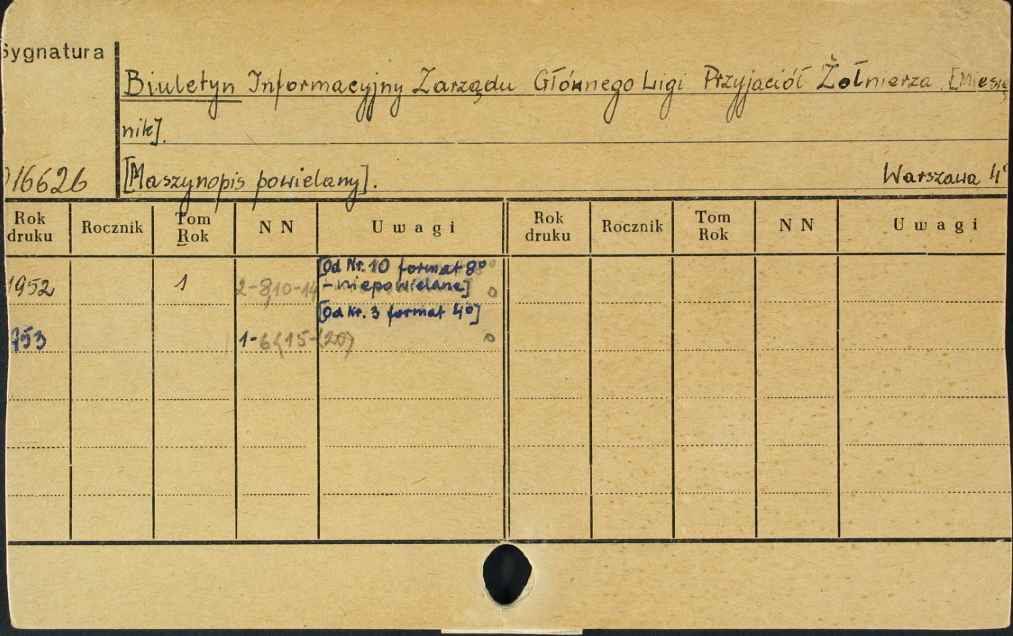 Sygnatura
Biuletyn Informacyjny Zarządu Głównego Ligi Przyjaciół Żołnierza [Miesię
nik].
016626 [Maszynopis powielany]. Warszawa 4°
Rok druku Rocznik Tom Rok NN Uwagi Rok druku Rocznik Tom Rok NN Uwagi
[Od Nr. 10 format 8°
1952 1 2-8,10-14 - niepowielane] o
[Od Nr. 3 format 4°]
953 1-6(15-(20) o